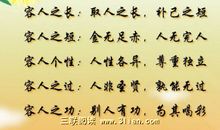 容人之长：取人之长，补己之短
容人之短：金无足赤，人无完人
容人个性：人性各异，尊重独立
容人之过：人非圣贤，孰能无过
容人之功：别人有功，为其喝彩
三联阅读 www.3lian.com